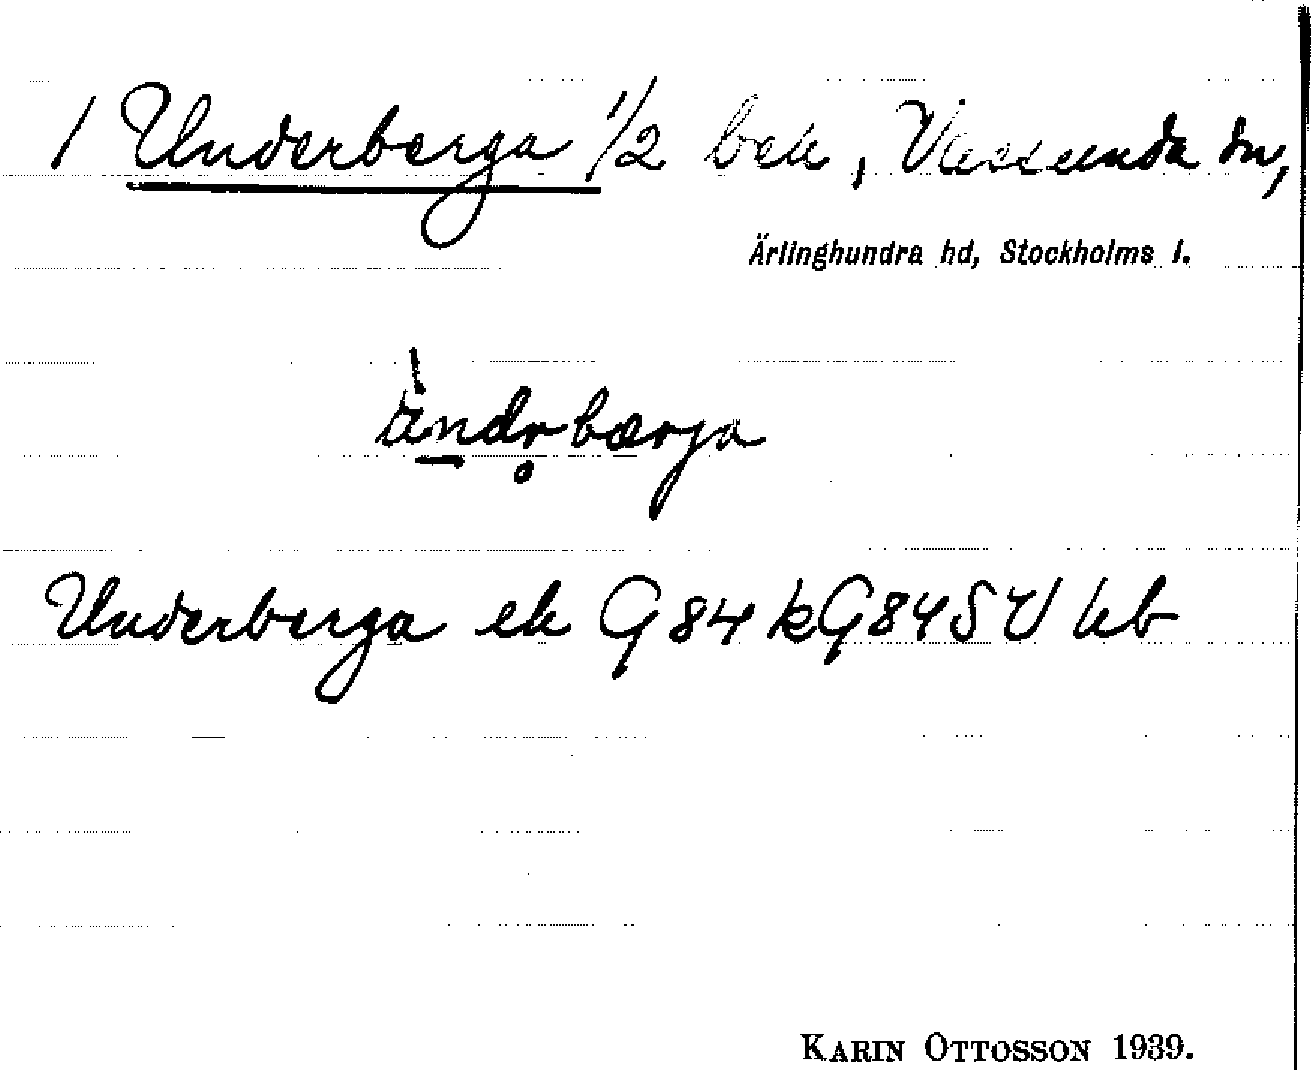 1 Underberga 1/2 beb, Vassunda sn,
Ärlinghundra hd, Stockholms l.
Underberga ek G 84 kG84SV hb
KARIN OTTOSSON 1939.